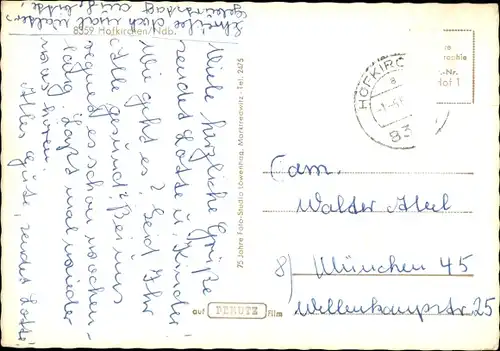 8359 Hofkirchen/Ndb.
Schreibe doch mal wieder,
Viele herzliche Grüße
sendet Lotte u. Kinder
Wie geht es? Seid Ihr
Alle gesund? Bei uns
regnet es schon wochen-
lang. Laßt mal wieder
was hören.
Alles Gute, sendet Lotte
75 Jahre Foto-Studio Löwenhag, Marktredwitz · Tel. 2475
auf PERUTZ Film
HOFKIRC
83
Hof 1
Fam.
Walter
8/ München 45
25